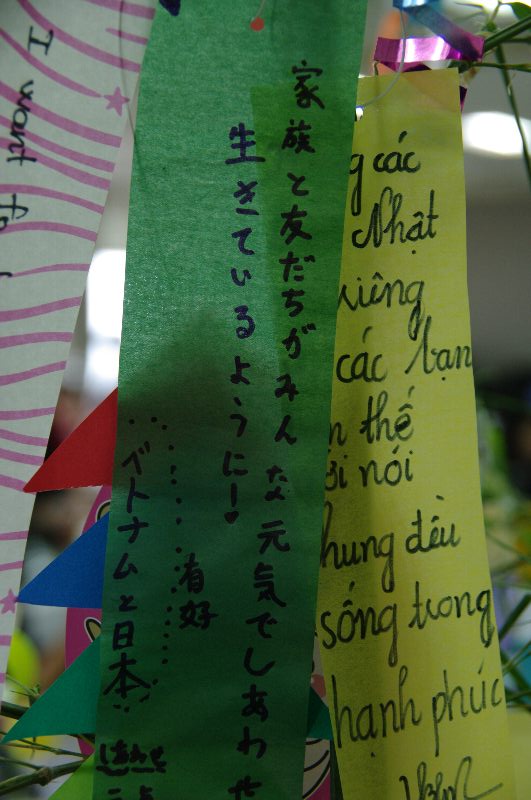 I want
家族と友だちがみんな元気でしあわせ
生きているように!
有好
ベトナムと日本
các
Nhật
riêng
các bạn
thế
nói
chung đều
sống trong
hạnh phúc